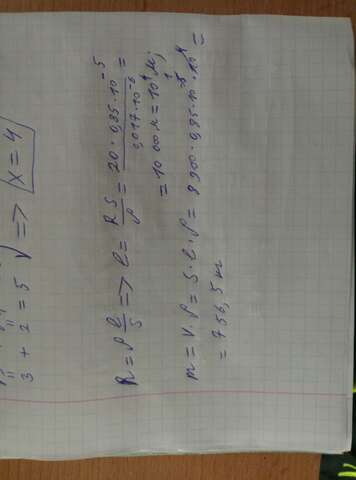 3 + 2 = 5 => x = 4
R = ρ l/S => l = RS/ρ = 20 · 0,85 · 10⁻⁵ / 0,017 · 10⁻⁶ =
= 10 000 м = 10⁴ м;
m = V · ρ = S · l · ρ = 8 900 · 0,85 · 10⁻⁵ · 10⁴ =
= 756,5 кг